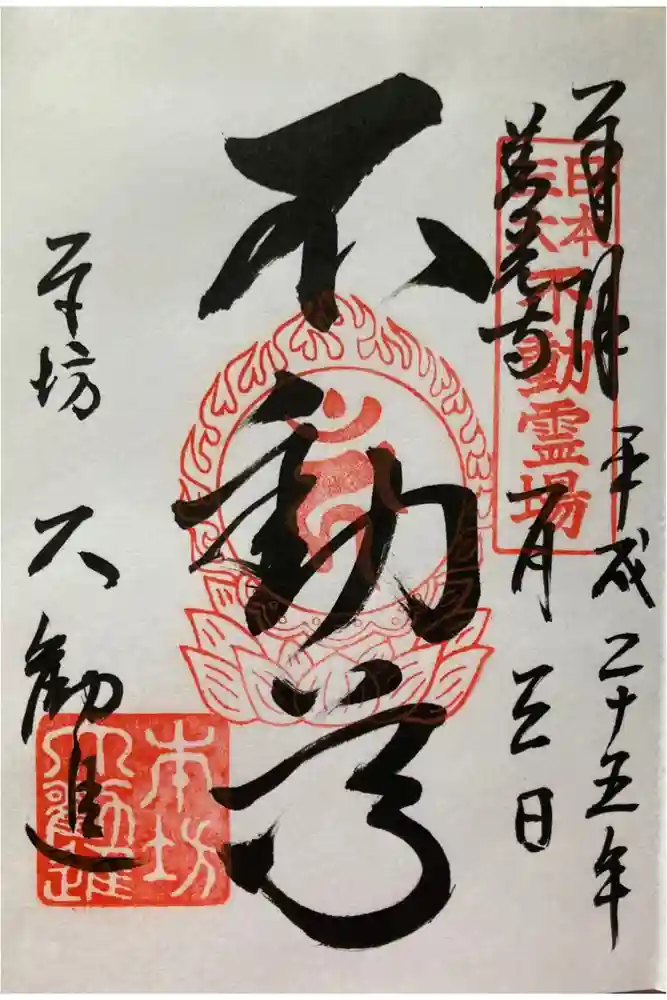 奉拝
平成二十五年
一月三日
善光寺
日本
三六
不動霊場
不動尊
本坊 大勧進
本坊
大勧進